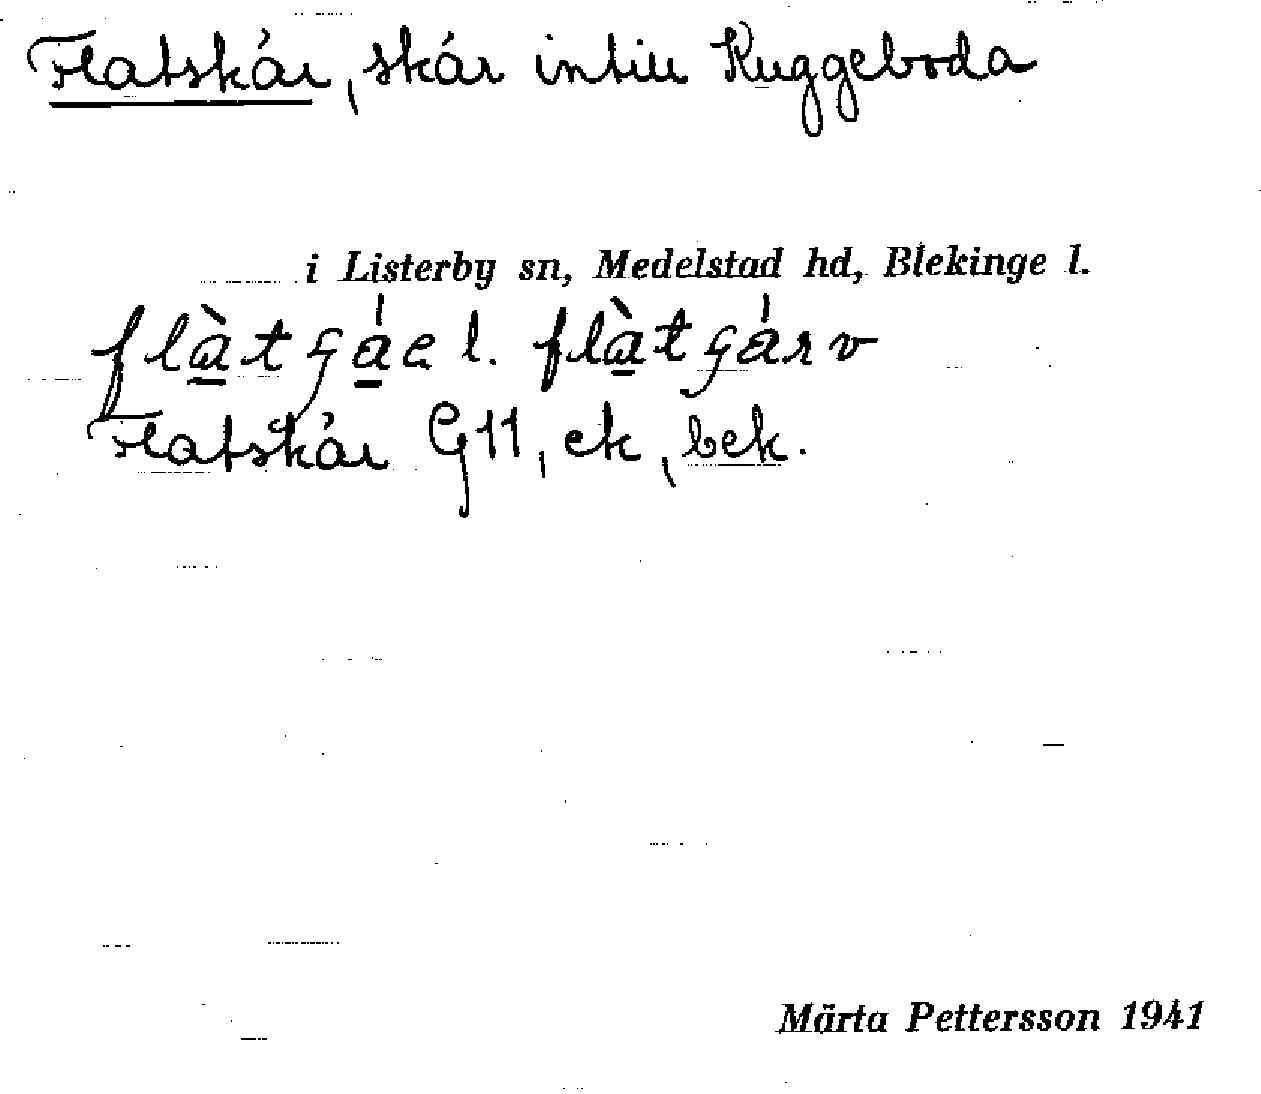 Flatskär, skär intill Kuggeboda
i Listerby sn, Medelstad hd, Blekinge l.
Flatskär G11, ek, bek.
Märta Pettersson 1941